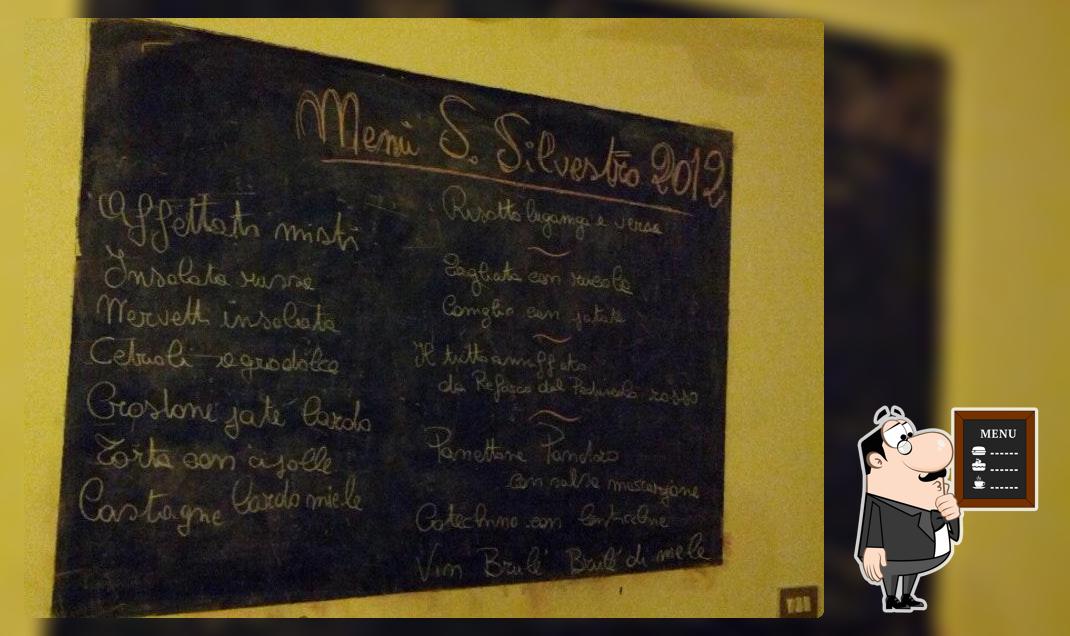 Menù S. Silvestro 2012
Affettati misti
Insalata russa
Nervetti insalata
Cetrioli agrodolce
Crostone paté lardo
Torta con cipolle
Castagne lardo miele
Risotto luganiga e verza
Tagliata con rucola
Coniglio con patate
Il tutto annaffiato
da Refosco dal Peduncolo rosso
Panettone Pandoro
con salsa mascarpone
Cotechino con lenticchie
Vin Brulé Brulé di mele
MENU